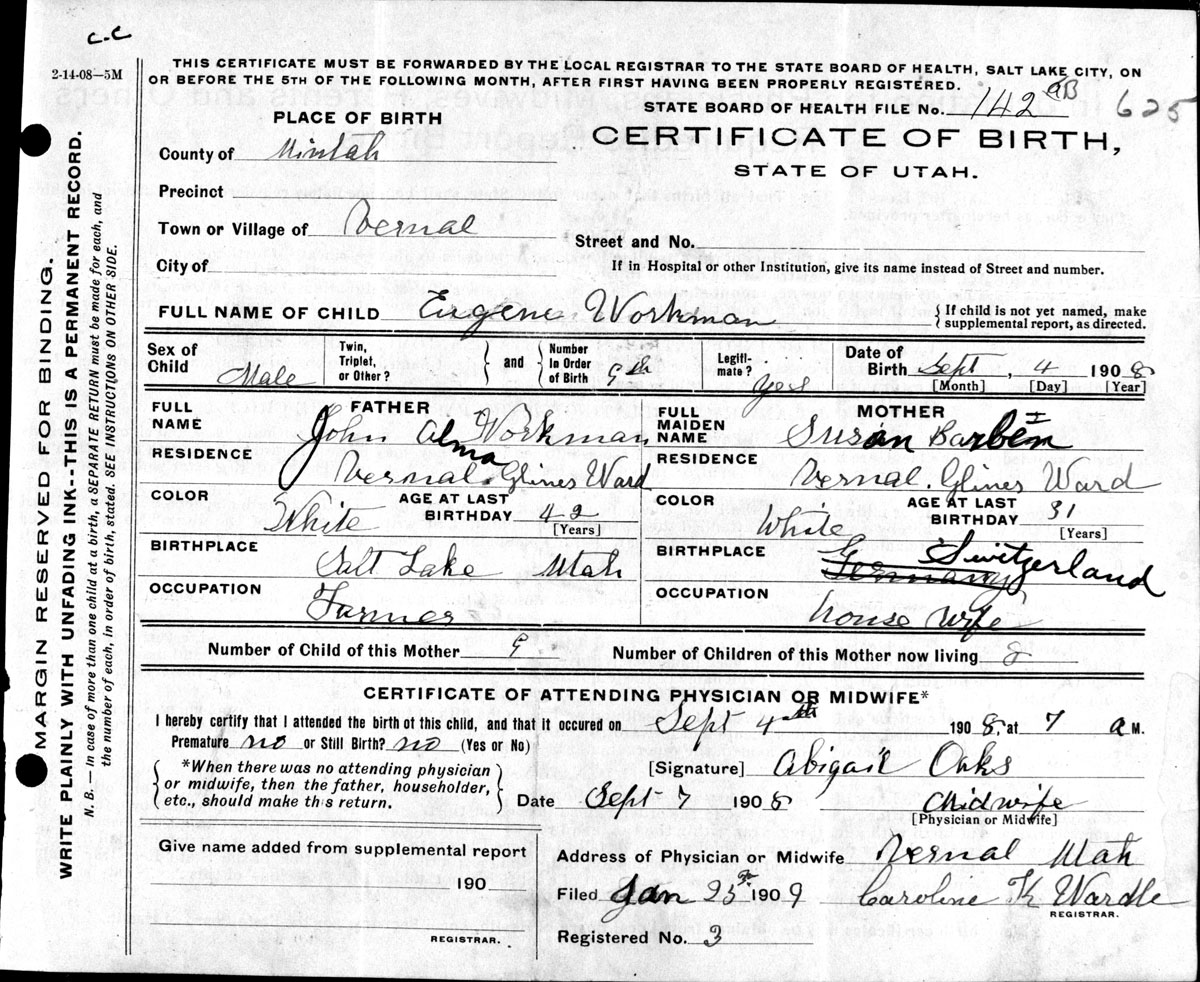 c.c
2-14-08—5M
THIS CERTIFICATE MUST BE FORWARDED BY THE LOCAL REGISTRAR TO THE STATE BOARD OF HEALTH, SALT LAKE CITY, ON
OR BEFORE THE 5TH OF THE FOLLOWING MONTH, AFTER FIRST HAVING BEEN PROPERLY REGISTERED.
STATE BOARD OF HEALTH FILE No. 142 625
PLACE OF BIRTH
CERTIFICATE OF BIRTH,
STATE OF UTAH.
County of Uintah
Precinct
Town or Village of Vernal
Street and No.
City of
If in Hospital or other Institution, give its name instead of Street and number.
FULL NAME OF CHILD Eugene Workman { If child is not yet named, make supplemental report, as directed.
Sex of Child Male Twin, Triplet, or Other? } and { Number In Order of Birth 9th Legiti- mate? yes Date of Birth Sept, 4 1908
[Month] [Day] [Year]
FATHER MOTHER
FULL NAME John Alma Workman FULL MAIDEN NAME Susan Barben
RESIDENCE Vernal. Glines Ward RESIDENCE Vernal. Glines Ward
COLOR White AGE AT LAST BIRTHDAY 42 [Years] COLOR White AGE AT LAST BIRTHDAY 31 [Years]
BIRTHPLACE Salt Lake Utah BIRTHPLACE Germany Switzerland
OCCUPATION Farmer OCCUPATION house wife
Number of Child of this Mother 9 Number of Children of this Mother now living 8
CERTIFICATE OF ATTENDING PHYSICIAN OR MIDWIFE*
I hereby certify that I attended the birth of this child, and that it occured on Sept 4th 1908, at 7 a M.
Premature no or Still Birth? no (Yes or No)
{ *When there was no attending physician
or midwife, then the father, householder,
etc., should make this return. }
[Signature] Abigail Oaks
Date Sept 7 1908 Midwife
[Physician or Midwife]
Give name added from supplemental report
190
REGISTRAR.
Address of Physician or Midwife Vernal Utah
Filed Jan 25 1909 Caroline K Wardle
REGISTRAR.
Registered No. 3
MARGIN RESERVED FOR BINDING.
WRITE PLAINLY WITH UNFADING INK--THIS IS A PERMANENT RECORD.
N. B.— In case of more than one child at a birth, a SEPARATE RETURN must be made for each, and
the number of each, in order of birth, stated. SEE INSTRUCTIONS ON OTHER SIDE.